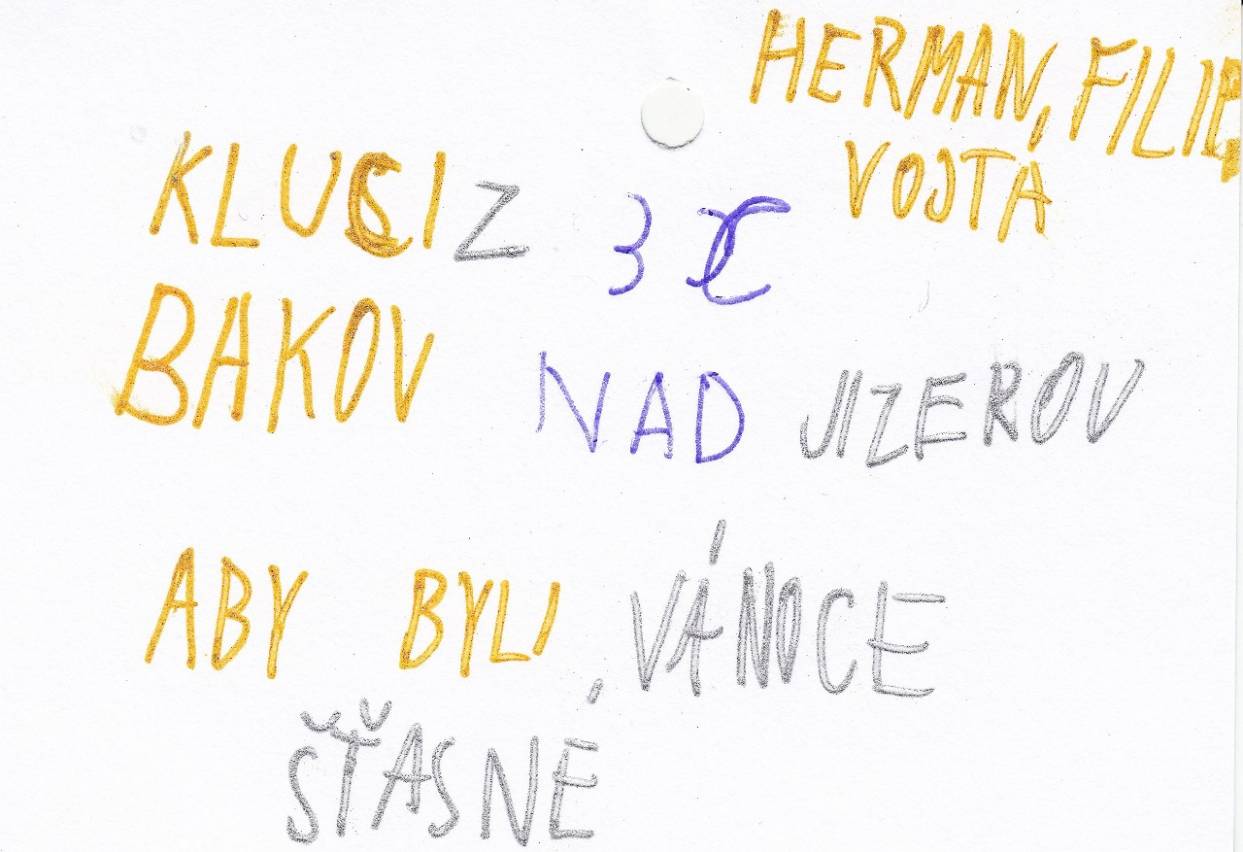 HERMAN, FILIP,
VOJTA
KLUCI Z 3C
BAKOV NAD JIZEROV
ABY BYLI VÁNOCE
ŠŤASNÉ